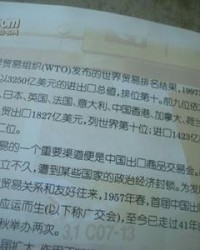 贸易组织(WTO)发布的世界贸易排名结果,1997
以3250亿美元的进出口总值,接位第十。前九位依
、日本、英国、法国、意大利、中国香港、加拿大、荷
贸出口1827亿美元,列世界第十位;进口1423亿
二位。
易的一个重要渠道便是中国出口商品交易会。
立不久,遭到某些国家的政治经济封锁。为发
贸易关系和友好往来,1957年春,首届中国出
应运而生(以下称广交会),至今已走过41年
秋举办两次。
31 C07-13